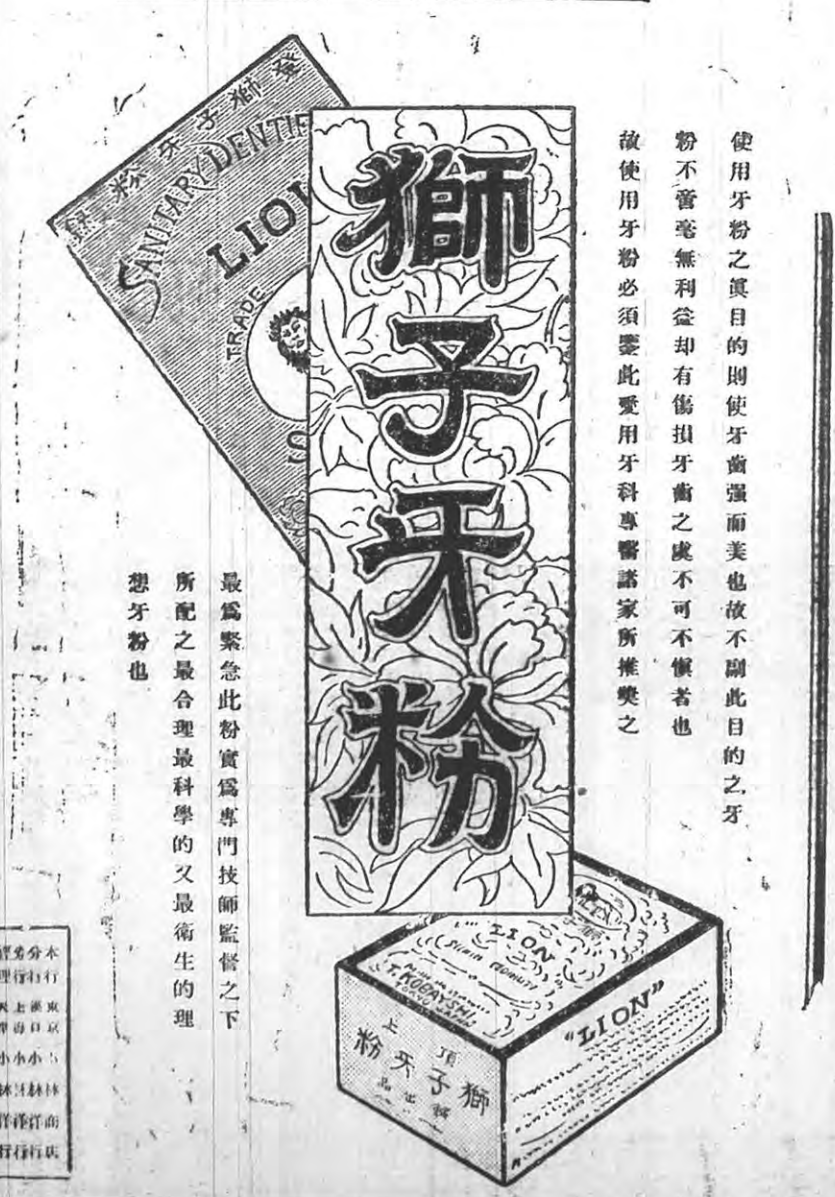 使用牙粉之眞目的則使牙齒强而美也故不副此目的之牙
粉不啻毫無利益却有傷損牙齒之處不可不愼者也
故使用牙粉必須鑒此愛用牙科專醫諸家所推奬之
獅子牙粉
最爲緊急此粉實爲專門技師監督之下
所配之最合理最科學的又最衛生的理
想牙粉也
獅子牙粉
SANITARY DENTIF
LION
TRADE
S
LION
T. KOBAYSHI
"LION"
頂上
獅子牙粉
本行 東京 小林商店
分行 漢口 小林洋行
行 上海 小林洋行
小林洋行